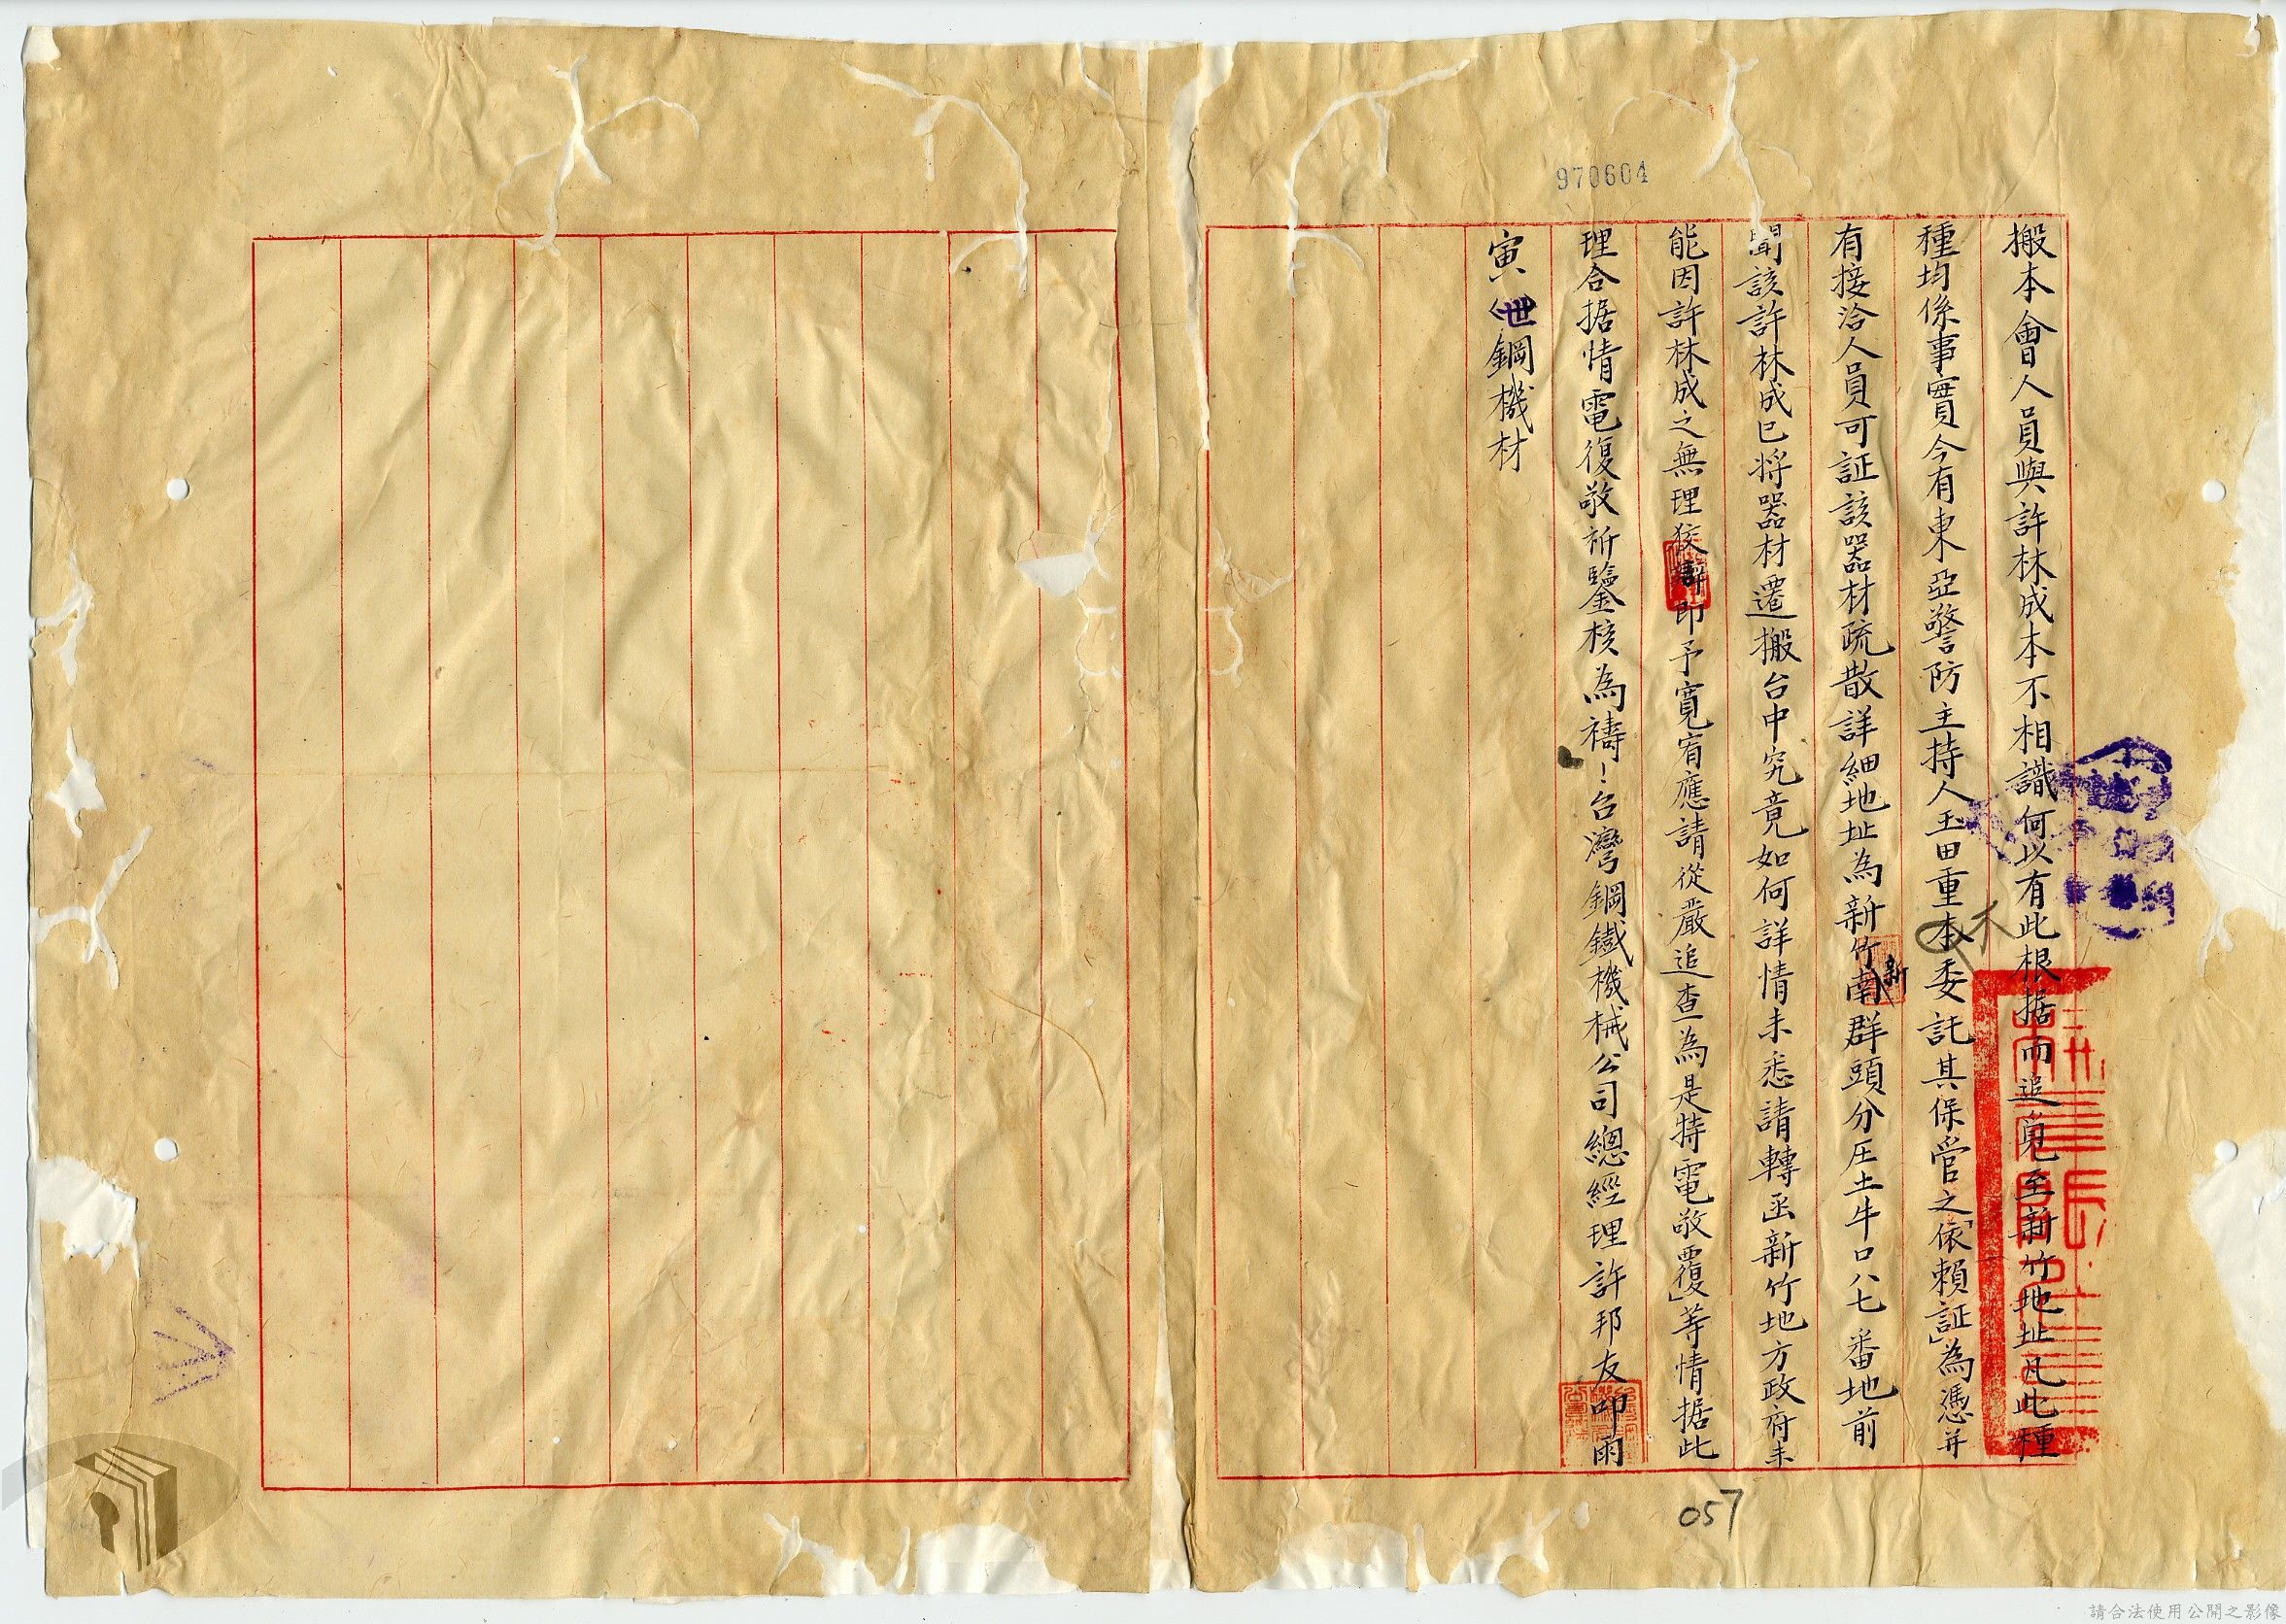 970604
搬本會人員與許林成本不相識何以有此根据而追覓至新竹地址凡此種
種均係事實今有東亞警防主持人玉田重本委託其保管之「依賴証」為憑并
木
有接洽人員可証該器材疏散詳細地址為新竹南群頭分庄土牛口八七番地前
新
聞該許林成已将器材遷搬台中究竟如何詳情未悉請轉函新竹地方政府未
能因許林成之無理狡辯即予寬宥應請從嚴追查為是特電敬覆」等情据此
理合据情電復敬祈鑒核為禱!台灣鋼鐵機械公司總經理許邦友叩雨
寅(世)鋼機材
057
請合法使用公開之影像